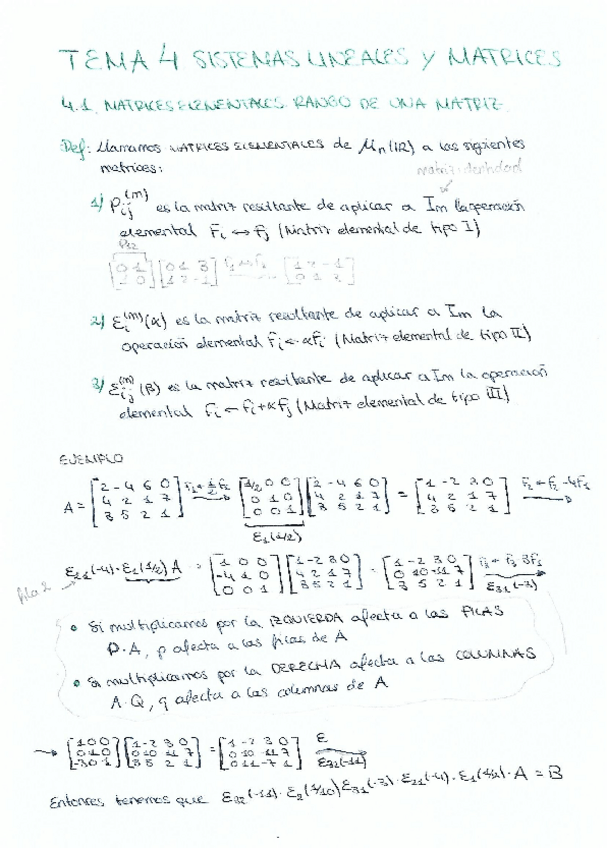 TEMA 4 SISTEMAS LINEALES Y MATRICES
4.1. MATRICES ELEMENTALES. RANGO DE UNA MATRIZ.
Def: Llamamos MATRICES ELEMENTALES de Mn(IR) a las siguientes
matrices:
matriz identidad
1) Pij^(m) es la matriz resultante de aplicar a Im la operación
elemental Fi ↔ Fj (Matriz elemental de tipo I)
P12
[0 1; 1 0] [0 1 3; 1 2 -1] [1 2 -1; 0 1 3]
2) Ei^(m)(α) es la matriz resultante de aplicar a Im la
operación elemental Fi ← αFi (Matriz elemental de tipo II)
3) Eij^(m)(β) es la matriz resultante de aplicar a Im la operación
elemental Fi ← Fi+αFj (Matriz elemental de tipo III)
EJEMPLO
A = [2 -4 6 0; 4 2 1 7; 3 5 2 1] → [1/2 0 0; 0 1 0; 0 0 1] [2 -4 6 0; 4 2 1 7; 3 5 2 1] = [1 -2 3 0; 4 2 1 7; 3 5 2 1] F2 ← F2 -4F1
E1(1/2)
E21(-4)·E1(1/2) A = [1 0 0; -4 1 0; 0 0 1] [1 -2 3 0; 4 2 1 7; 3 5 2 1] = [1 -2 3 0; 0 10 -11 7; 3 5 2 1] F3 ← F3 3F1
fila 2
E31(-3)
• Si multiplicamos por la IZQUIERDA afecta a las FILAS
P·A, p afecta a las filas de A
• Si multiplicamos por la DERECHA afecta a las COLUMNAS
A·Q, q afecta a las columnas de A
→ [1 0 0; 0 1 0; -3 0 1] [1 -2 3 0; 0 10 -11 7; 3 5 2 1] = [1 -2 3 0; 0 10 -11 7; 0 11 -7 1] E
E32(-11)
Entonces tenemos que E32(-11)·E2(1/10) E31(-3)·E21(-4)·E1(1/2)·A = B